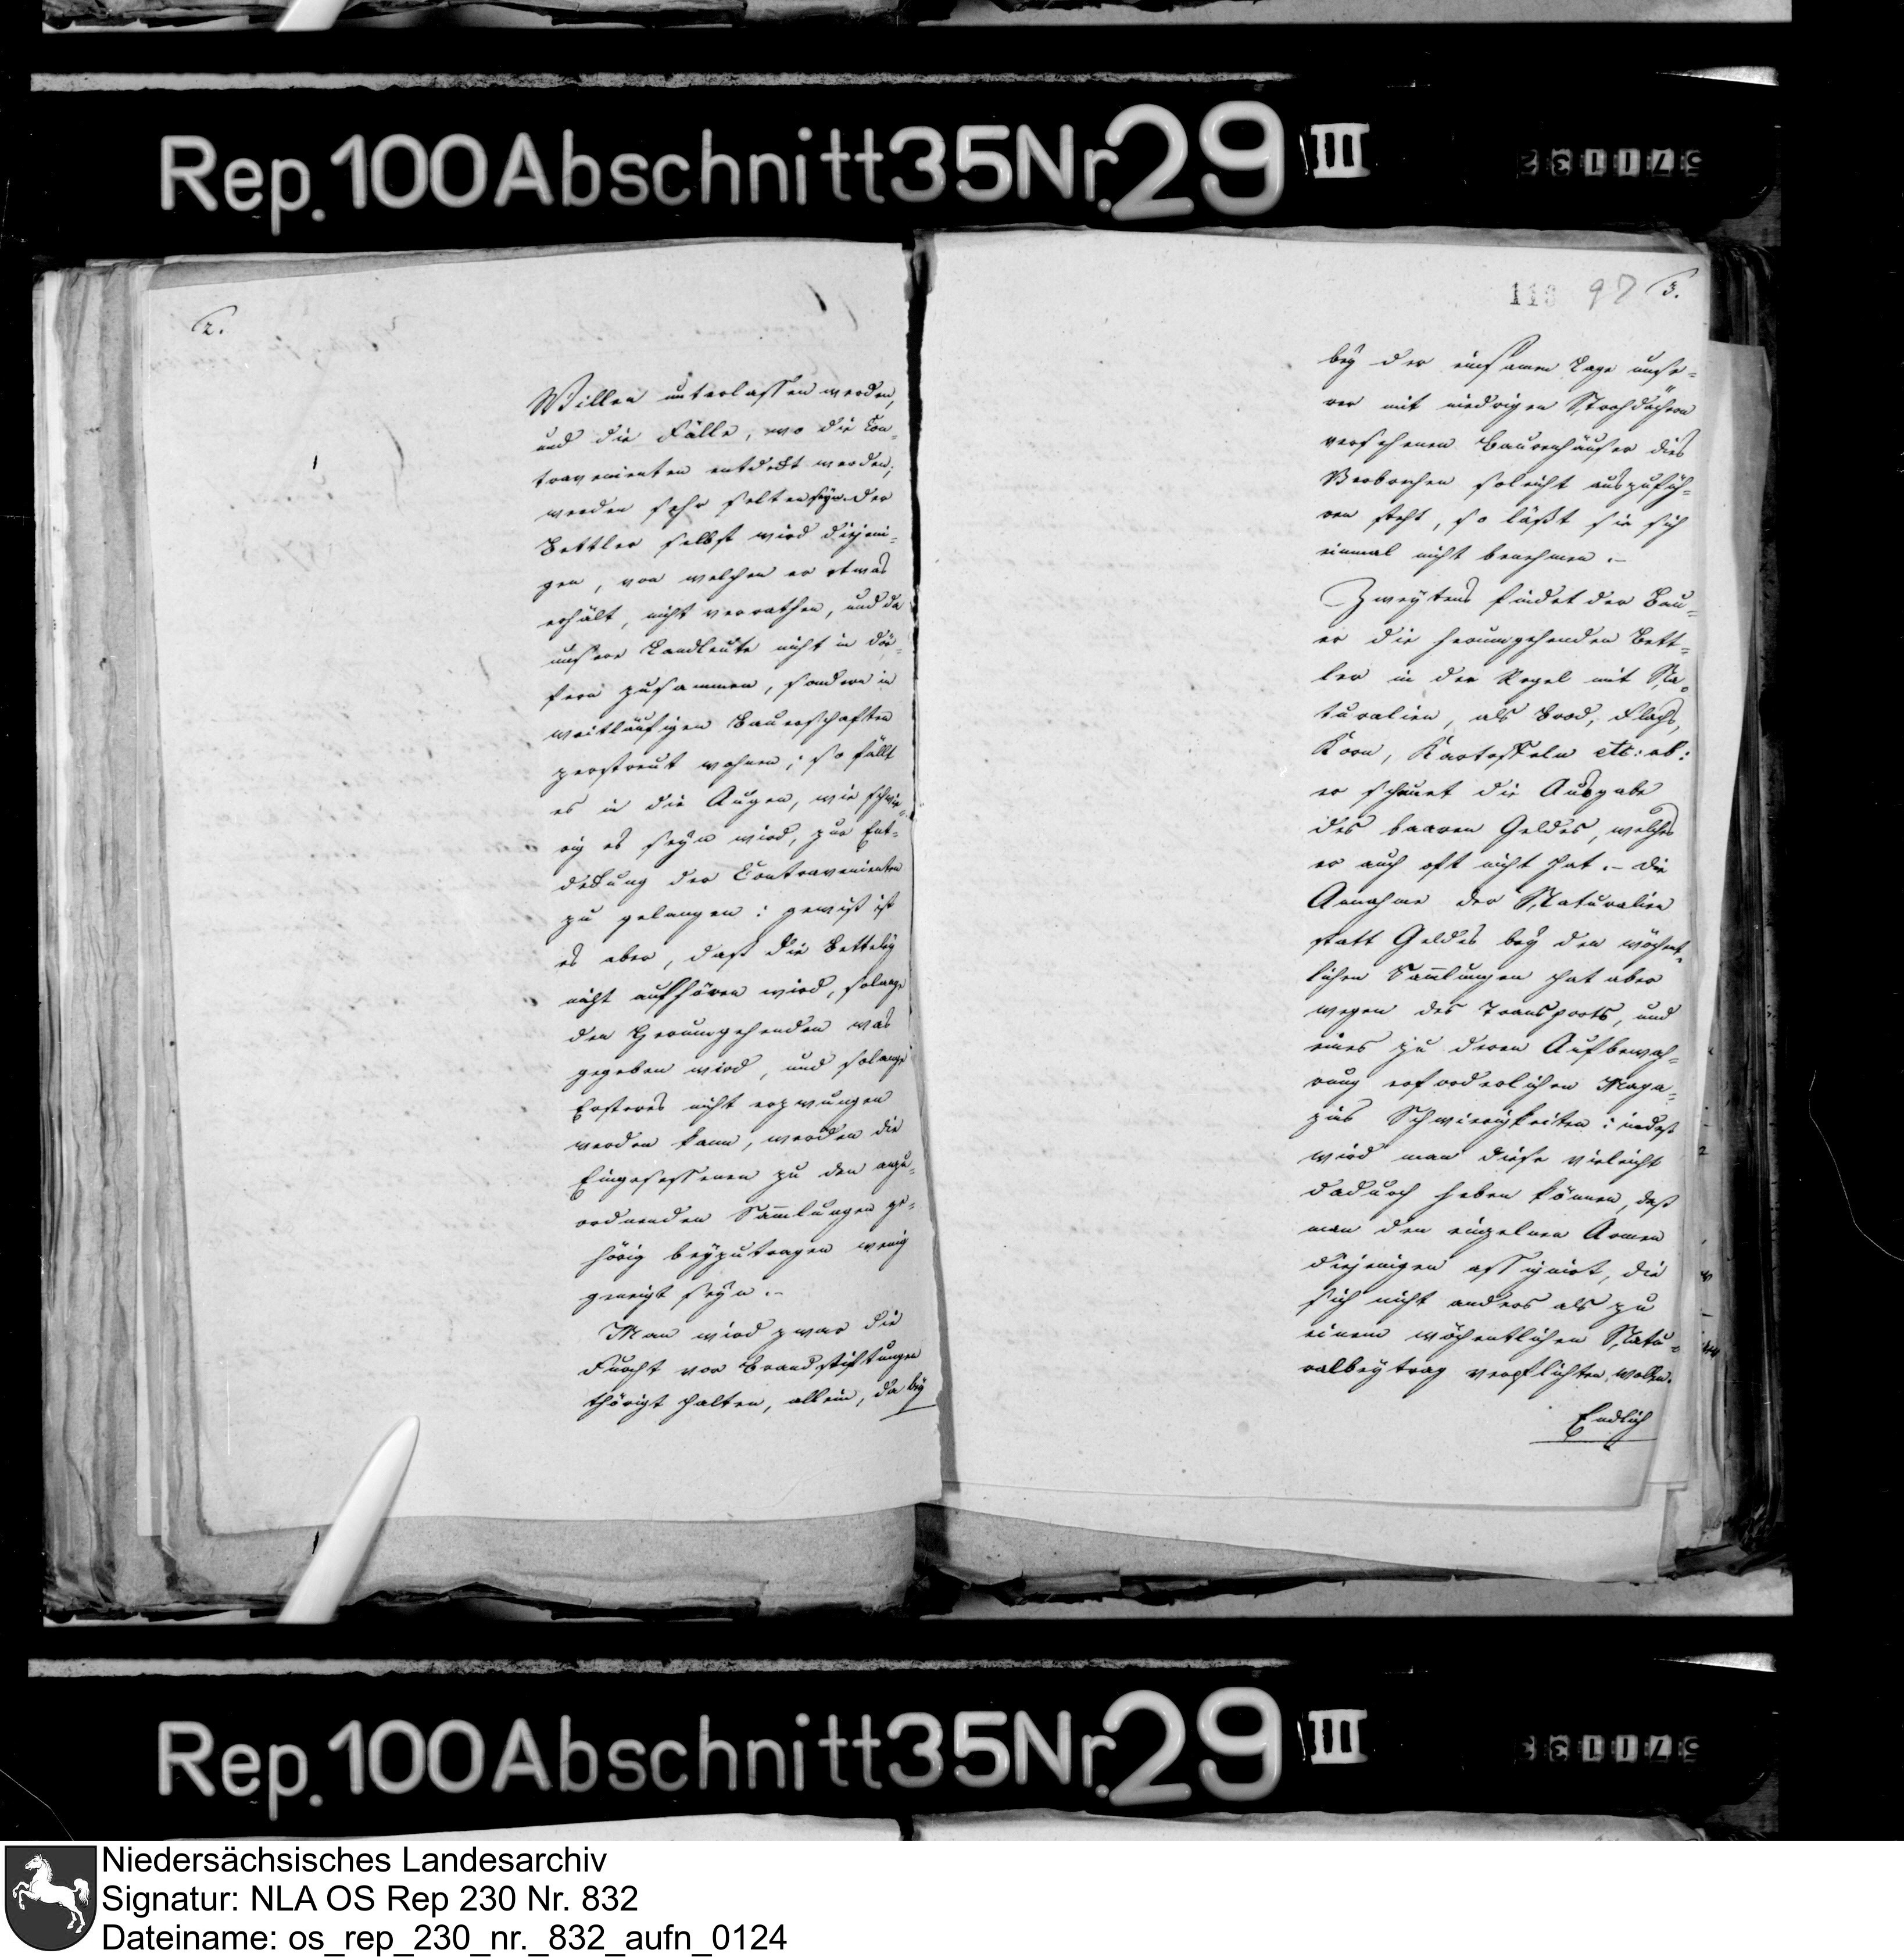 Rep. 100 Abschnitt 35 Nr. 29 III
571132
2.
Willen unterlassen werden,
und die Fälle, wo die Con-
travenienten entdekt werden,
werden sehr selten seyn. Der
Bettler selbst wird diejeni-
gen, von welchen er etwas
erhält, nicht verrathen, und da
unsere Landleute nicht in Dör-
fern zusammen, sondern in
weitläufigen Bauerschaften
zerstreut wohnen; so fällt
es in die Augen, wie schwie-
rig es seyn wird, zur Ent-
dekung der Contravenienten
zu gelangen: gewiß ist
es aber, daß die Betteley
nicht aufhören wird, solange
den Herumgehenden was
gegeben wird, und solange
Ersteres nicht erzwungen
werden kann, werden die
Eingesessenen zu den anzu-
ordnenden Samlungen ge-
hörig beyzutragen wenig
geneigt seyn.-
Man wird zwar die
Furcht vor Brandstiftungen
thörigt halten, allein, da bey
113 97 3.
bey der einsamen Lage unse-
rer mit niedrigen Strohdächern
versehenen Bauernhäuser dies
Verbrechen so leicht auszufüh-
ren steht, so läßt sie sich
einmal nicht benehmen.-
Zweytens findet der Bau-
er die herumgehenden Bett-
ler in der Regel mit Na-
turalien, als Brod, Flachs,
Korn, Kartoffeln etc: ab:
er scheuet die Ausgabe
des baaren Geldes, welches
er auch oft nicht hat.- Die
Annahme der Naturalien
statt Geldes bey den wöchent-
lichen Samlungen hat aber
wegen des Transports, und
eines zu deren Aufbewah-
rung erforderlichen Maga-
zins Schwierigkeiten: indeß
wird man diese vieleicht
dadurch heben können, daß
man den einzelnen Armen
diejenigen assignirt, die
sich nicht anders als zu
einem wöchentlichen Natu-
ralbeytrag verpflichten wollen.
Endlich
Rep. 100 Abschnitt 35 Nr. 29 III
571133
Niedersächsisches Landesarchiv
Signatur: NLA OS Rep 230 Nr. 832
Dateiname: os_rep_230_nr._832_aufn_0124